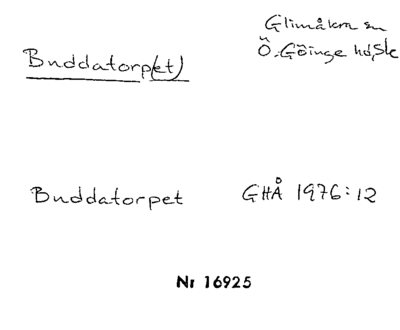 Glimåkra sn
Ö. Göinge hd, Sk
Buddatorp(et)
Buddatorpet GHÅ 1976:12
Nr 16925